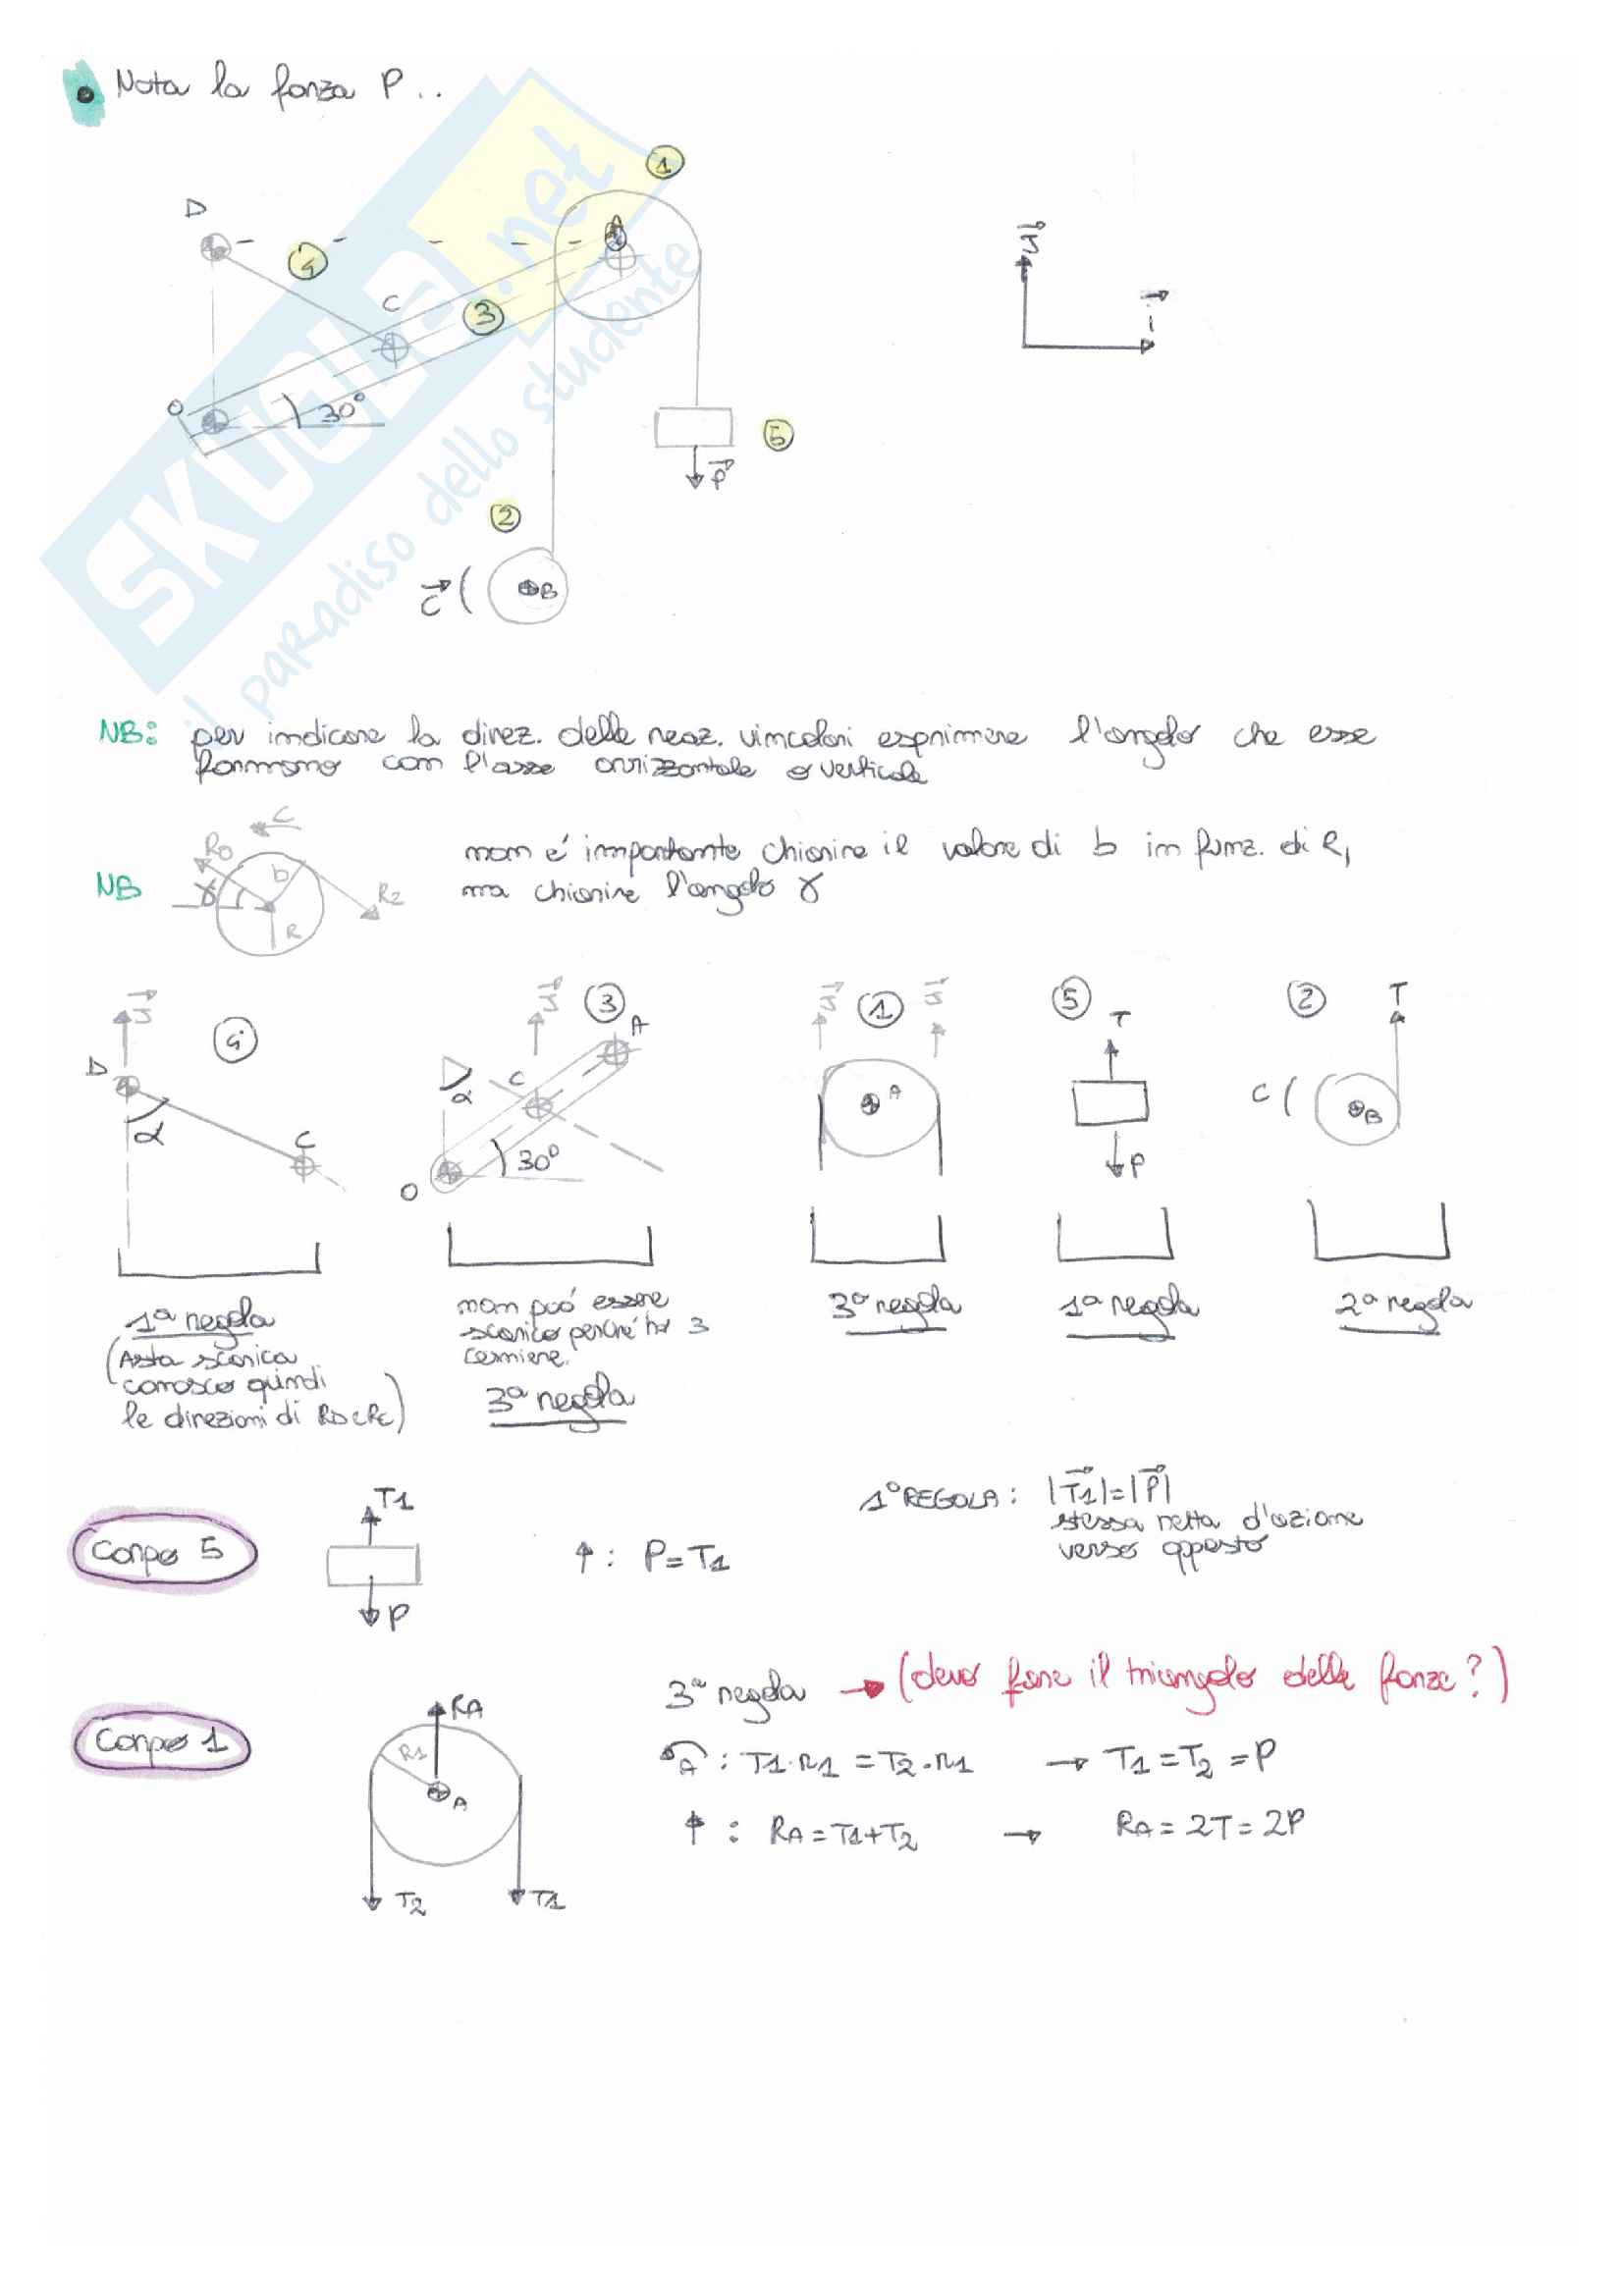 Nota la forza P..
1
D
A
4
j
C
3
i
O
30°
5
P
2
C
B
SKUOLA.net
il paradiso dello studente
NB: per indicare la direz. delle reaz. vincolari esprimere l'angolo che esse
formano con l'asse orizzontale o verticale
C
RO
b
R2
γ
R
NB
non é importante chiarire il valore di b in funz. di R1
ma chiarire l'angolo γ
j
4
D
α
C
j
3
A
C
α
30°
O
j
j
1
A
5
T
P
2
T
C
B
1ª regola
(Asta scarica
conosco quindi
le direzioni di RD e RC)
non puó essere
scarico perché ho 3
cerniere.
3ª regola
3ª regola
1ª regola
2ª regola
Corpo 5
T1
P
↑: P=T1
1° REGOLA: |T1|=|P|
stessa retta d'azione
verso opposto
Corpo 1
RA
R1
A
T2
T1
3ª regola → (devo fare il triangolo delle forze?)
A : T1·R1 = T2·R1 → T1 = T2 = P
↑ : RA = T1+T2 → RA = 2T = 2P